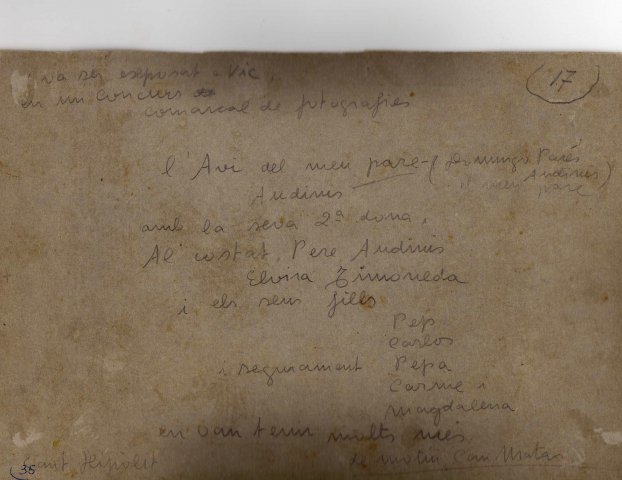 i va ser exposat a Vic,
17
en un concurs
comarcal de fotografies
l'Avi del meu pare - (Domingo Parés
Audinis Audinis)
el meu pare
amb la seva 2ª dona,
Al costat, Pere Audinis
Elvira Timoneda
i els seus fills
Pep
Carlos
i segurament Pepa
Carme i
Magdalena
en van tenir molts més
Sant Hipòlit de motiu Can Matas
35